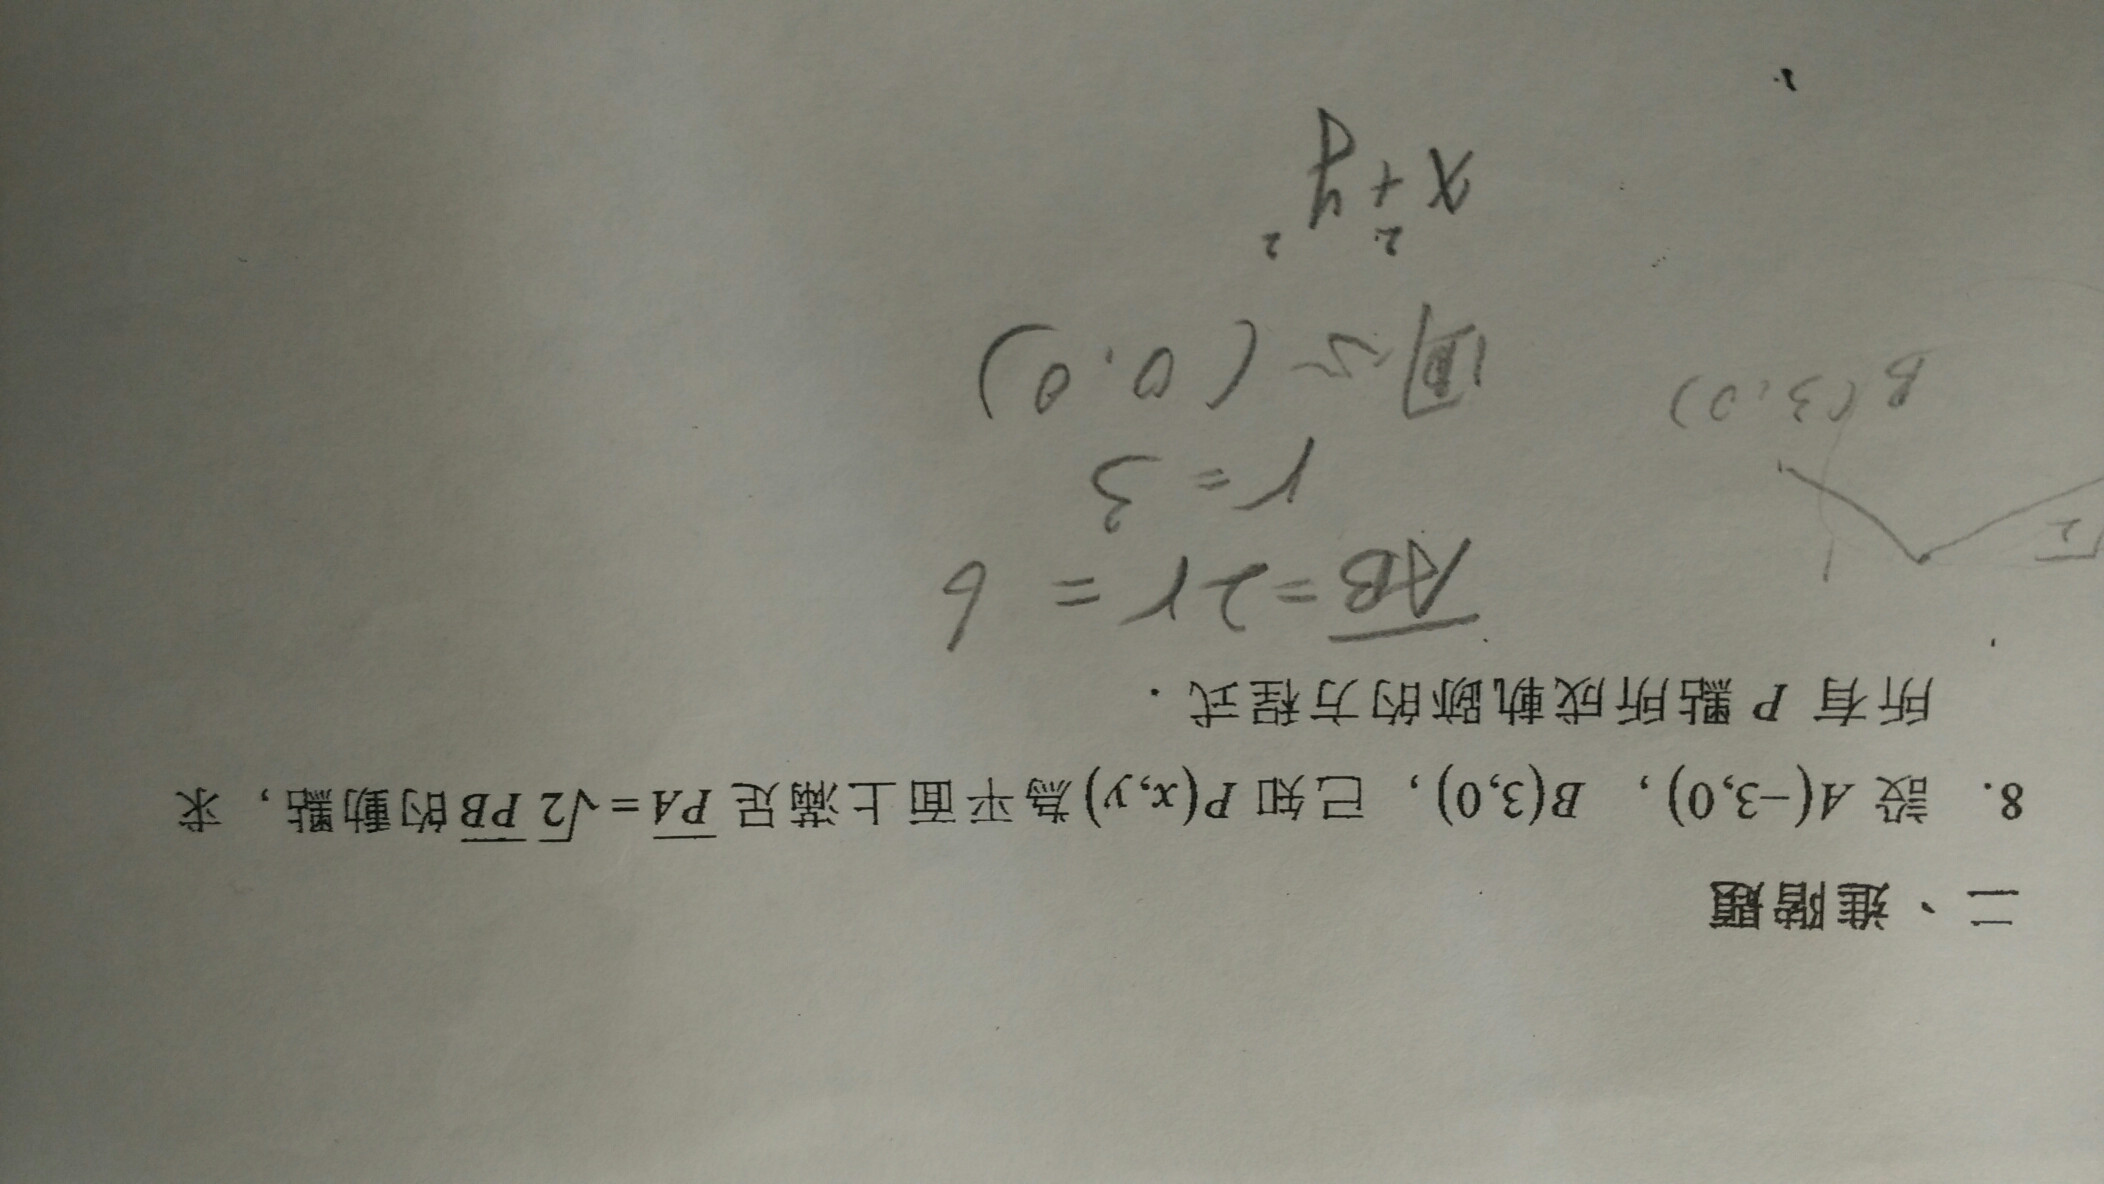 二、進階題
8. 設 A(−3,0)， B(3,0)，已知 P(x,y)為平面上滿足 PA=√2 PB的動點，求
所有 P 點所成軌跡的方程式．
AB=2r = 6
√2
r=3
B(3,0)
圓心(0,0)
x²+y²